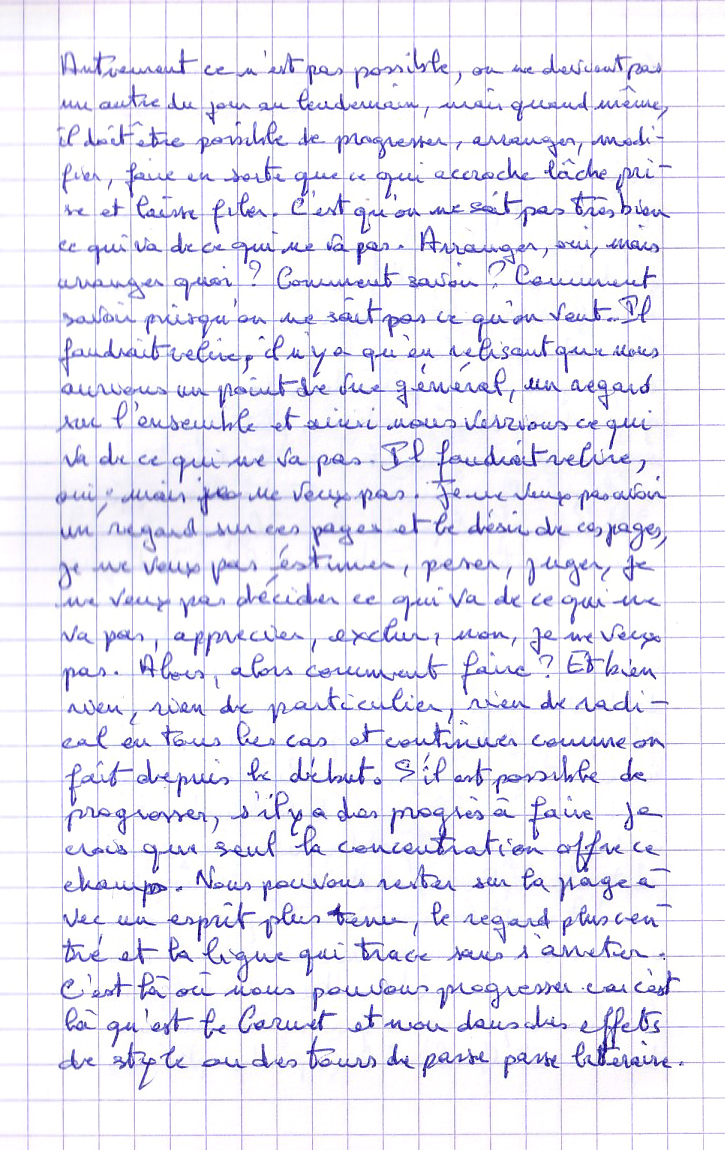 Autrement ce n'est pas possible, on ne devient pas
un autre du jour au lendemain, mais quand même,
il doit être possible de progresser, arranger, modi-
fier, faire en sorte que ce qui accroche lâche pri-
se et laisse filer. C'est qu'on ne sait pas très bien
ce qui va de ce qui ne va pas. Arranger, oui, mais
arranger quoi ? Comment savoir ? Comment
savoir puisqu'on ne sait pas ce qu'on veut. Il
faudrait relire, il n'y a qu'en relisant que nous
aurions un point de vue général, un regard
sur l'ensemble et ainsi nous verrions ce qui
va de ce qui ne va pas. Il faudrait relire,
oui, mais je ne veux pas. Je ne veux pas avoir
un regard sur ces pages et le désir de ces pages,
je ne veux pas éstimer, peser, juger, je
ne veux pas décider ce qui va de ce qui ne
va pas, apprecier, exclure, non, je ne veux
pas. Alors, alors comment faire ? Et bien
rien, rien de particulier, rien de radi-
cal en tous les cas et continuer comme on
fait depuis le début. S'il est possible de
progresser, s'il y a des progrès à faire je
crois que seul la concentration offre ce
champ. Nous pouvons rester sur la page a-
vec un esprit plus tenu, le regard plus cen-
tré et la ligne qui trace sans s'arreter.
C'est là où nous pouvons progresser car c'est
là qu'est le Carnet et non dans des effets
de style ou des tours de passe passe littéraire.